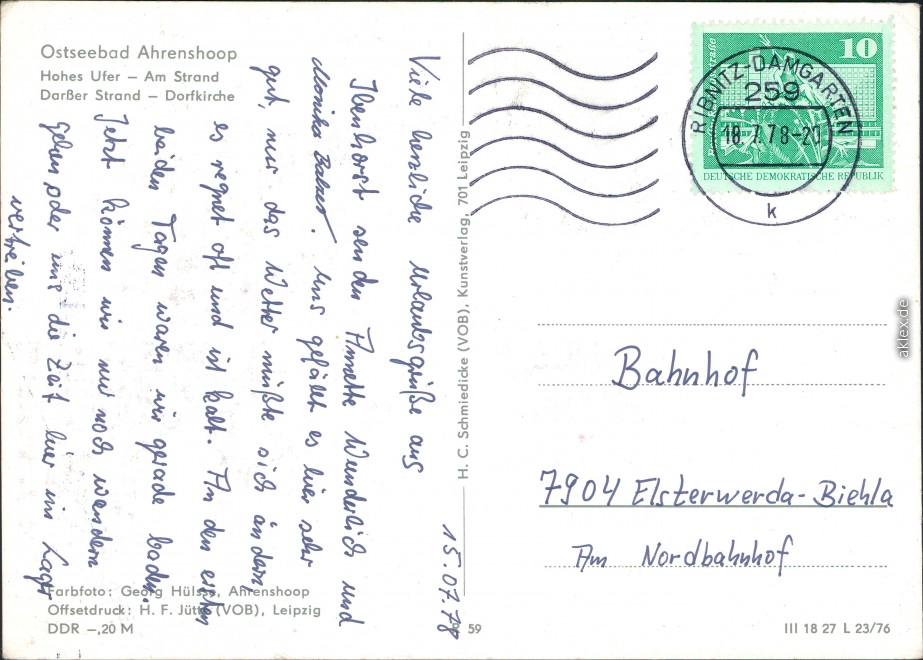 Ostseebad Ahrenshoop
Hohes Ufer – Am Strand
Darßer Strand – Dorfkirche
15.07.78
Viele herzliche Urlaubsgrüße aus
Ibenhorst senden Annette Wunderlich und
Monika. Uns gefällt es hier sehr
gut, nur das Wetter müßte sich ändern
es regnet oft und ist kalt. An den ersten
beiden Tagen waren wir gerade baden.
Jetzt können wir nur noch wandern
gehen oder uns die Zeit hier im Lager
vertreiben.
Farbfoto: Georg Hülsse, Ahrenshoop
Offsetdruck: H. F. Jütte (VOB), Leipzig
DDR –,20 M
H. C. Schmiedicke (VOB), Kunstverlag, 701 Leipzig
59
10
DEUTSCHE DEMOKRATISCHE REPUBLIK
RIBNITZ-DAMGARTEN
259
18.7.78-20
k
Bahnhof
7904 Elsterwerda-Biehla
Am Nordbahnhof
III 18 27 L 23/76
aklex.de